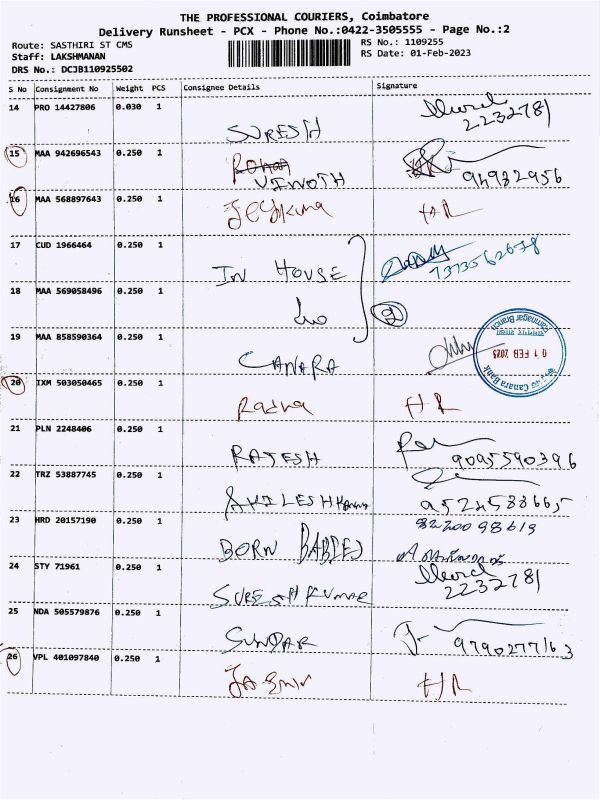 THE PROFESSIONAL COURIERS, Coimbatore
Delivery Runsheet - PCX - Phone No.:0422-3505555 - Page No.:2
Route: SASTHIRI ST CMS RS No.: 1109255
Staff: LAKSHMANAN RS Date: 01-Feb-2023
DRS No.: DCJB110925502
S No Consignment No Weight PCS Consignee Details Signature
14 PRO 14427806 0.030 1
SURESH 2232781
15 MAA 942696543 0.250 1
VINOTH 94982956
16 MAA 568897643 0.250 1
HR
17 CUD 1966464 0.250 1
IN HOUSE 7373562678
18 MAA 569058496 0.250 1
2
19 MAA 858590364 0.250 1
CANARA 01 FEB 2023 Canara Bank Ramnagar Branch
20 IXM 503050465 0.250 1
Radha HR
21 PLN 2248406 0.250 1
RAJESH 9095590396
22 TRZ 53887745 0.250 1
9524588665
23 HRD 20157190 0.250 1
BORN BABIES 8220098619
24 STY 71961 0.250 1
SURESH KUMAR 2232781
25 NDA 505579876 0.250 1
SUNDAR 9790277163
26 VPL 401097840 0.250 1
HR